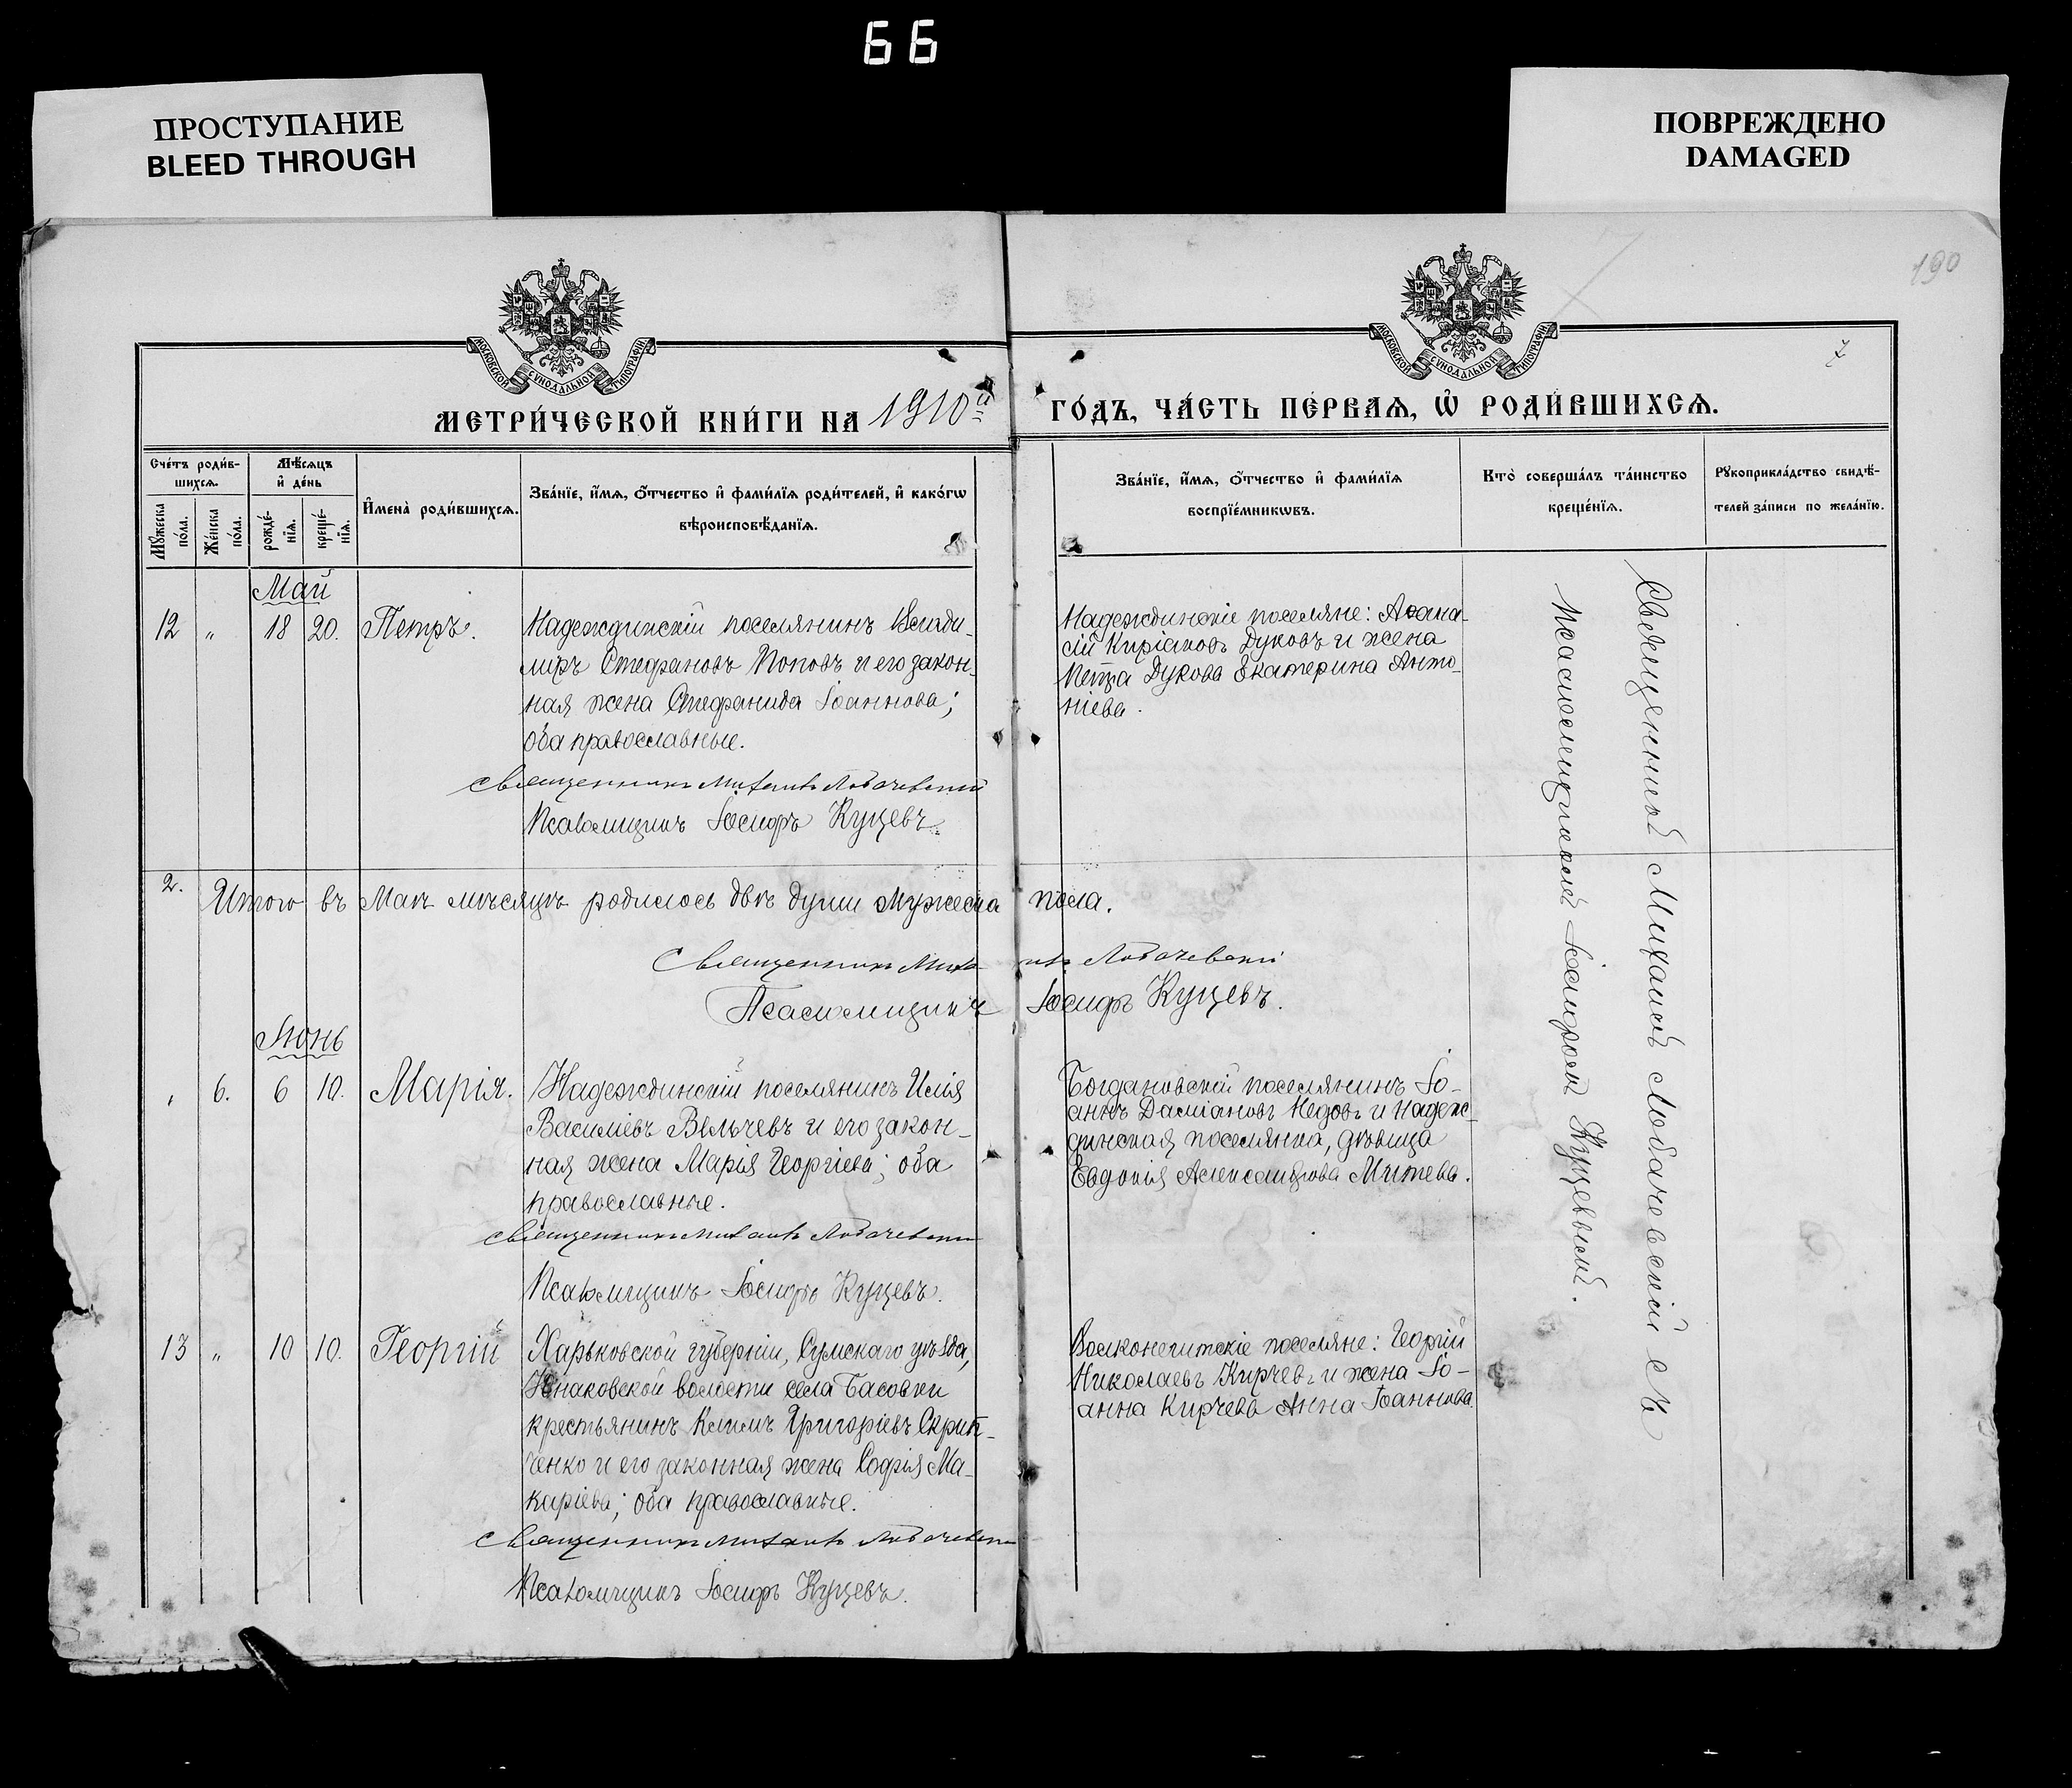 66
ПРОСТУПАНИЕ
BLEED THROUGH
ПОВРЕЖДЕНО
DAMAGED
190
7
МОСКОВСКОЙ СѴНОДАЛЬНОЙ ТИПОГРАФІИ
МОСКОВСКОЙ СѴНОДАЛЬНОЙ ТИПОГРАФІИ
МЕТРИ́ЧЕСКОЙ КНИ́ГИ НА 1910й
ГО́ДЪ, ЧА́СТЬ ПЕ́РВАѦ, Ѡ҆ РОДИ́ВШИХСѦ.
Сче́тъ роди́в-
шихсѧ.
Мѣ́сѧцъ
и҆ де́нь
Мꙋ́жеска
по́ла.
Же́нска
по́ла.
рожде́-
нїѧ.
креще́-
нїѧ.
И҆мена̀ роди́вшихсѧ.
Зва́нїе, и҆́мѧ, ѻ҆́тчество и҆ фами́лїѧ роди́телей, и҆ како́гѡ
вѣроисповѣ́данїѧ.
Зва́нїе, и҆́мѧ, ѻ҆́тчество и҆ фами́лїѧ
воспрїе́мникѡвъ.
Кто̀ соверша́лъ та́инство
креще́нїѧ.
Рꙋкоприкла́дство свидѣ́-
телей за́писи по жела́нїю.
Май
12 " 18 20. Петръ.
Надеждинскій поселянинъ Влади-
миръ Стефановъ Поповъ и его закон-
ная жена Стефанида Іоаннова;
оба православные.
Священникъ Михаилъ Лобачевскій
Псаломщикъ Іосифъ Куцевъ.
Надеждинскіе поселяне: Аѳана-
сій Киріаковъ Дуковъ и жена
Петра Дукова Екатерина Анто-
ніева.
2. Итого въ Маѣ мѣсяцѣ родилось двѣ души мужеска пола.
Священникъ Михаилъ Лобачевскій
Псаломщикъ Іосифъ Куцевъ.
Іюнь
" 6. 6 10. Марія.
Надеждинскій поселянинъ Илія
Василіевъ Вѣлчевъ и его закон-
ная жена Марія Георгіева; оба
православные.
Священникъ Михаилъ Лобачевскій
Псаломщикъ Іосифъ Куцевъ.
Богдановскій поселянинъ Іо-
аннъ Даміановъ Недовъ и Надеж-
динская поселянка, дѣвица
Евдокія Александрова Митева.
13 " 10 10. Георгій
Харьковской губерніи, Сумскаго уѣзда,
Юнаковской волости села Басовки
крестьянинъ Климъ Григоріевъ Скрип-
ченко и его законная жена Софія Ма-
каріева; оба православные.
Священникъ Михаилъ Лобачевскій
Псаломщикъ Іосифъ Куцевъ.
Волконештскіе поселяне: Георгій
Николаевъ Кирчевъ и жена Іо-
анна Кирчева Анна Іоаннова.
Священникъ Михаилъ Лобачевскій съ
псаломщикомъ Іосифомъ Куцевымъ.